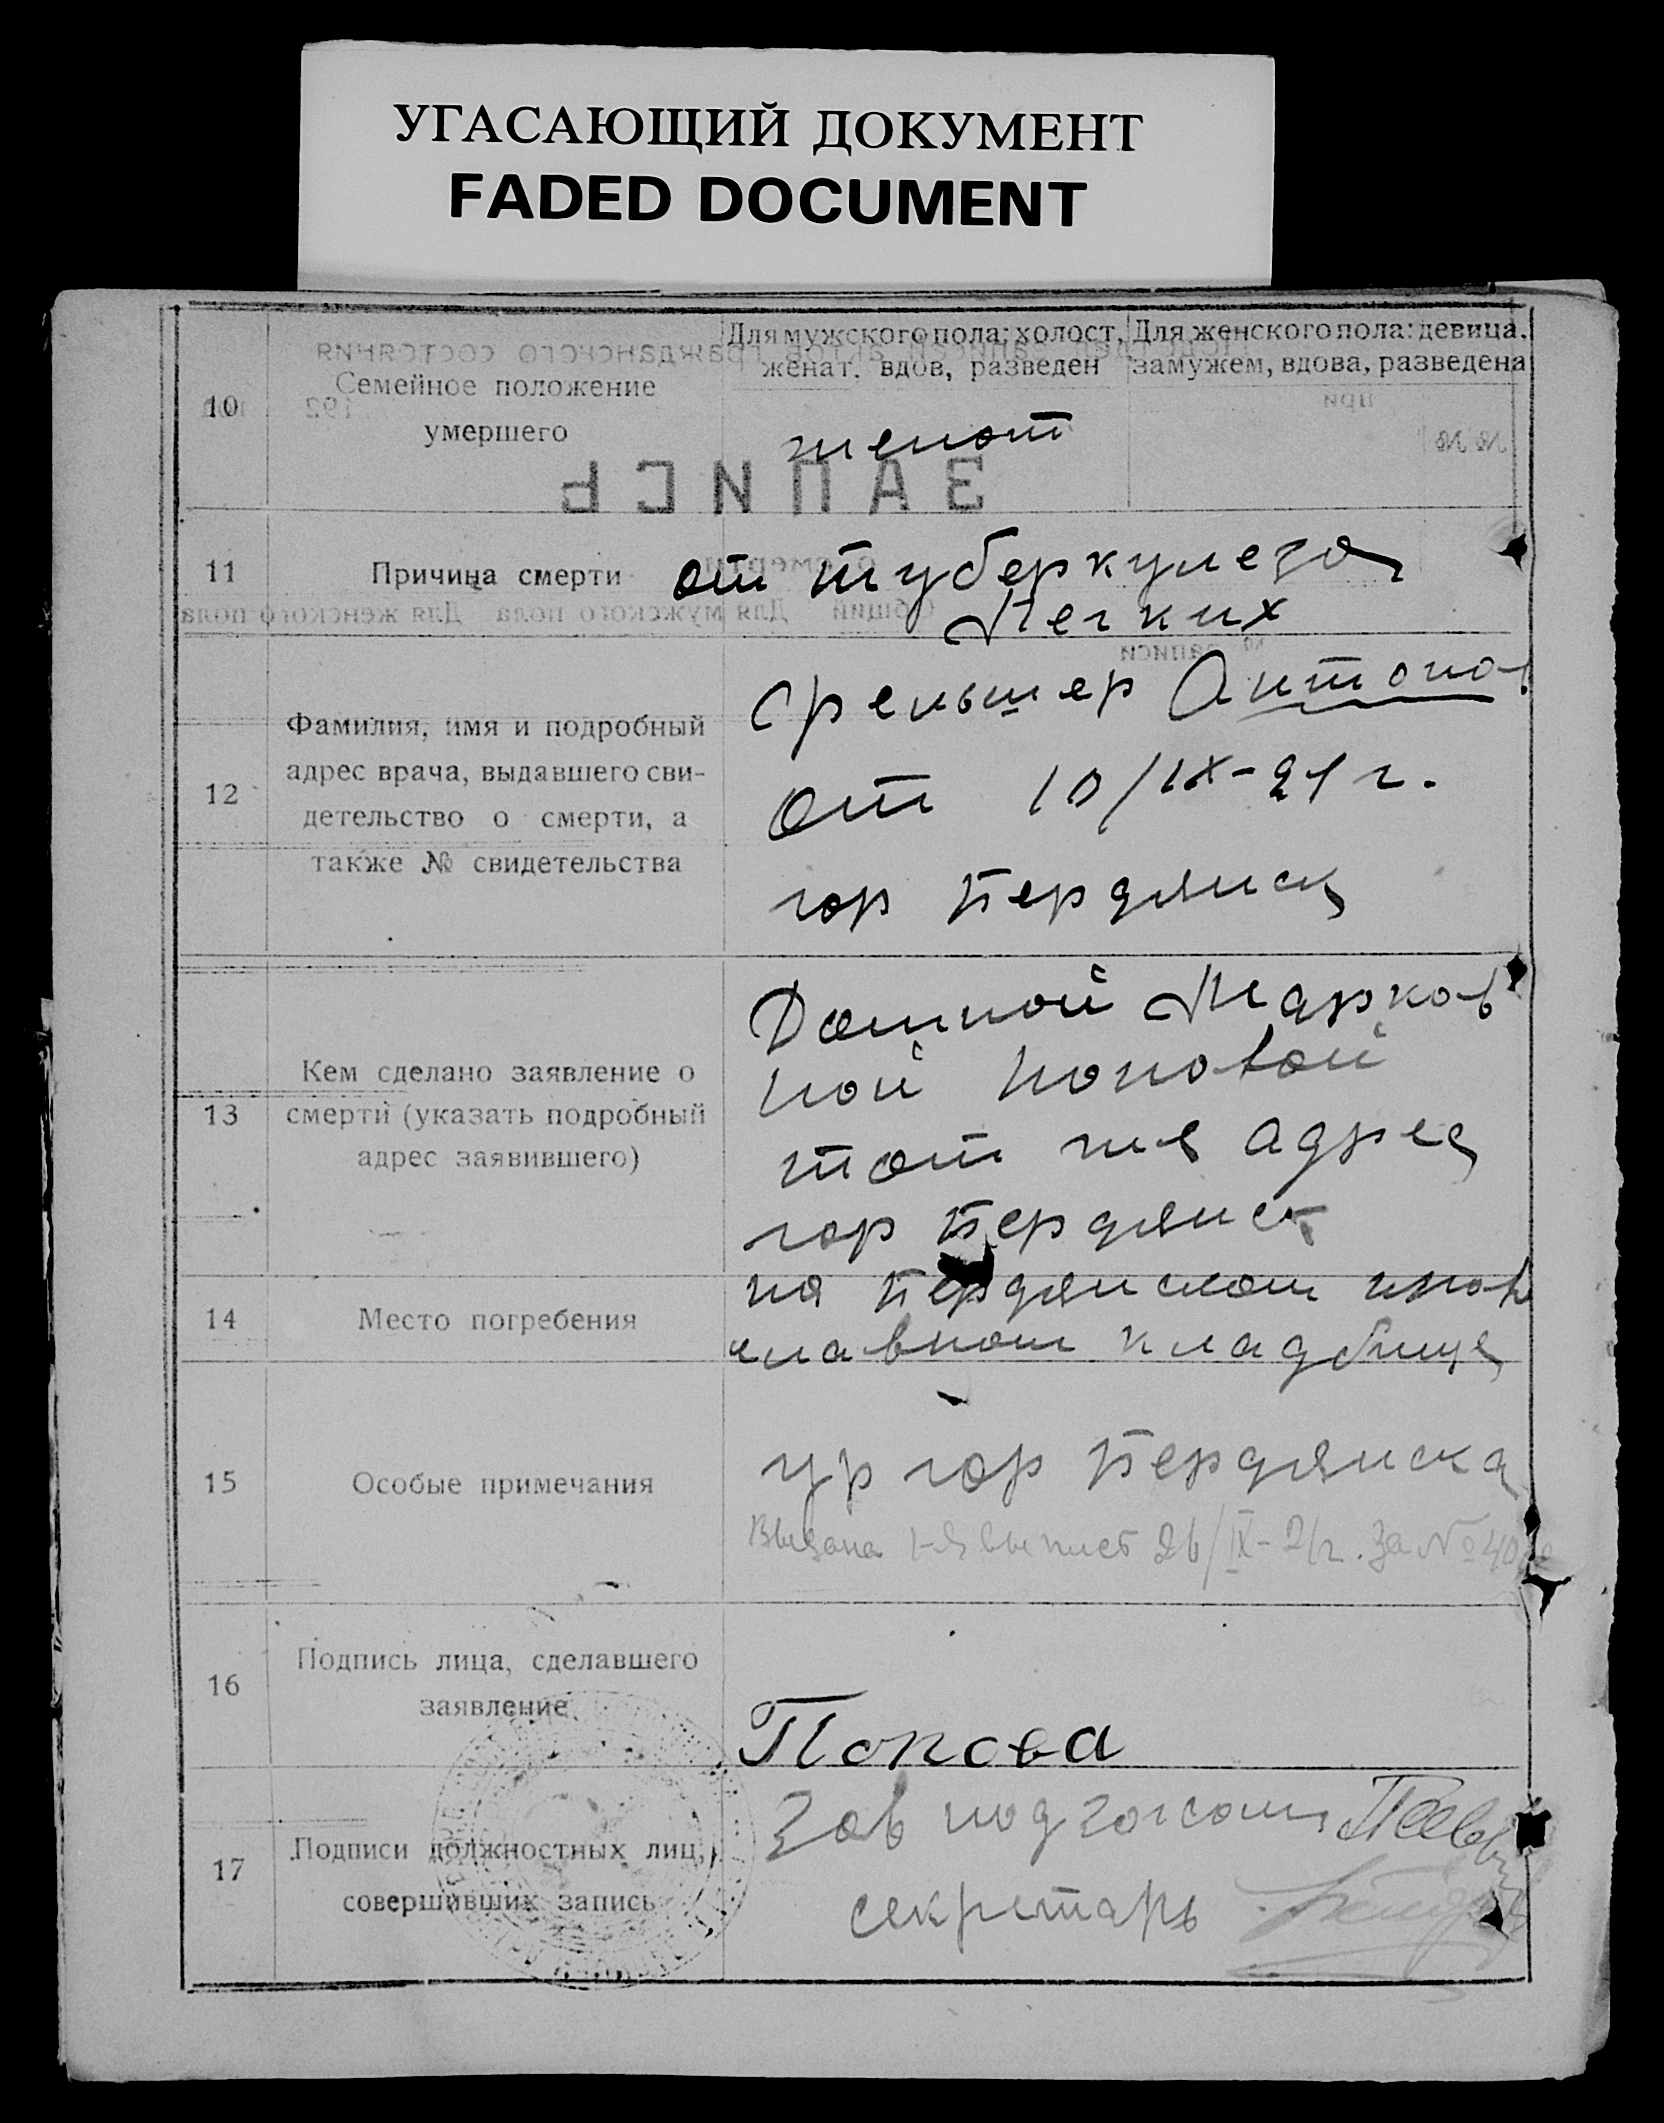 УГАСАЮЩИЙ ДОКУМЕНТ
FADED DOCUMENT
10
Семейное положение
умершего
Для мужского пола: холост,
женат, вдов, разведен
Для женского пола: девица,
замужем, вдова, разведена
женат
ЗАПИСЬ
11
Причина смерти
от туберкулеза
Легких
12
Фамилия, имя и подробный
адрес врача, выдавшего сви-
детельство о смерти, а
также № свидетельства
Антонов
от 10/IX-21 г.
гор Бердянск
13
Кем сделано заявление о
смерти (указать подробный
адрес заявившего)
Домной Марков
ной Поповой
тот же адрес
гор Бердянск
14
Место погребения
на Бердянском право
славном кладбище
15
Особые примечания
гр гор Бердянска
Выдана 1-я выпись 26/IX-21г. За №
16
Подпись лица, сделавшего
заявление
Попова
17
Подписи должностных лиц,
совершивших запись
Зав
секретарь